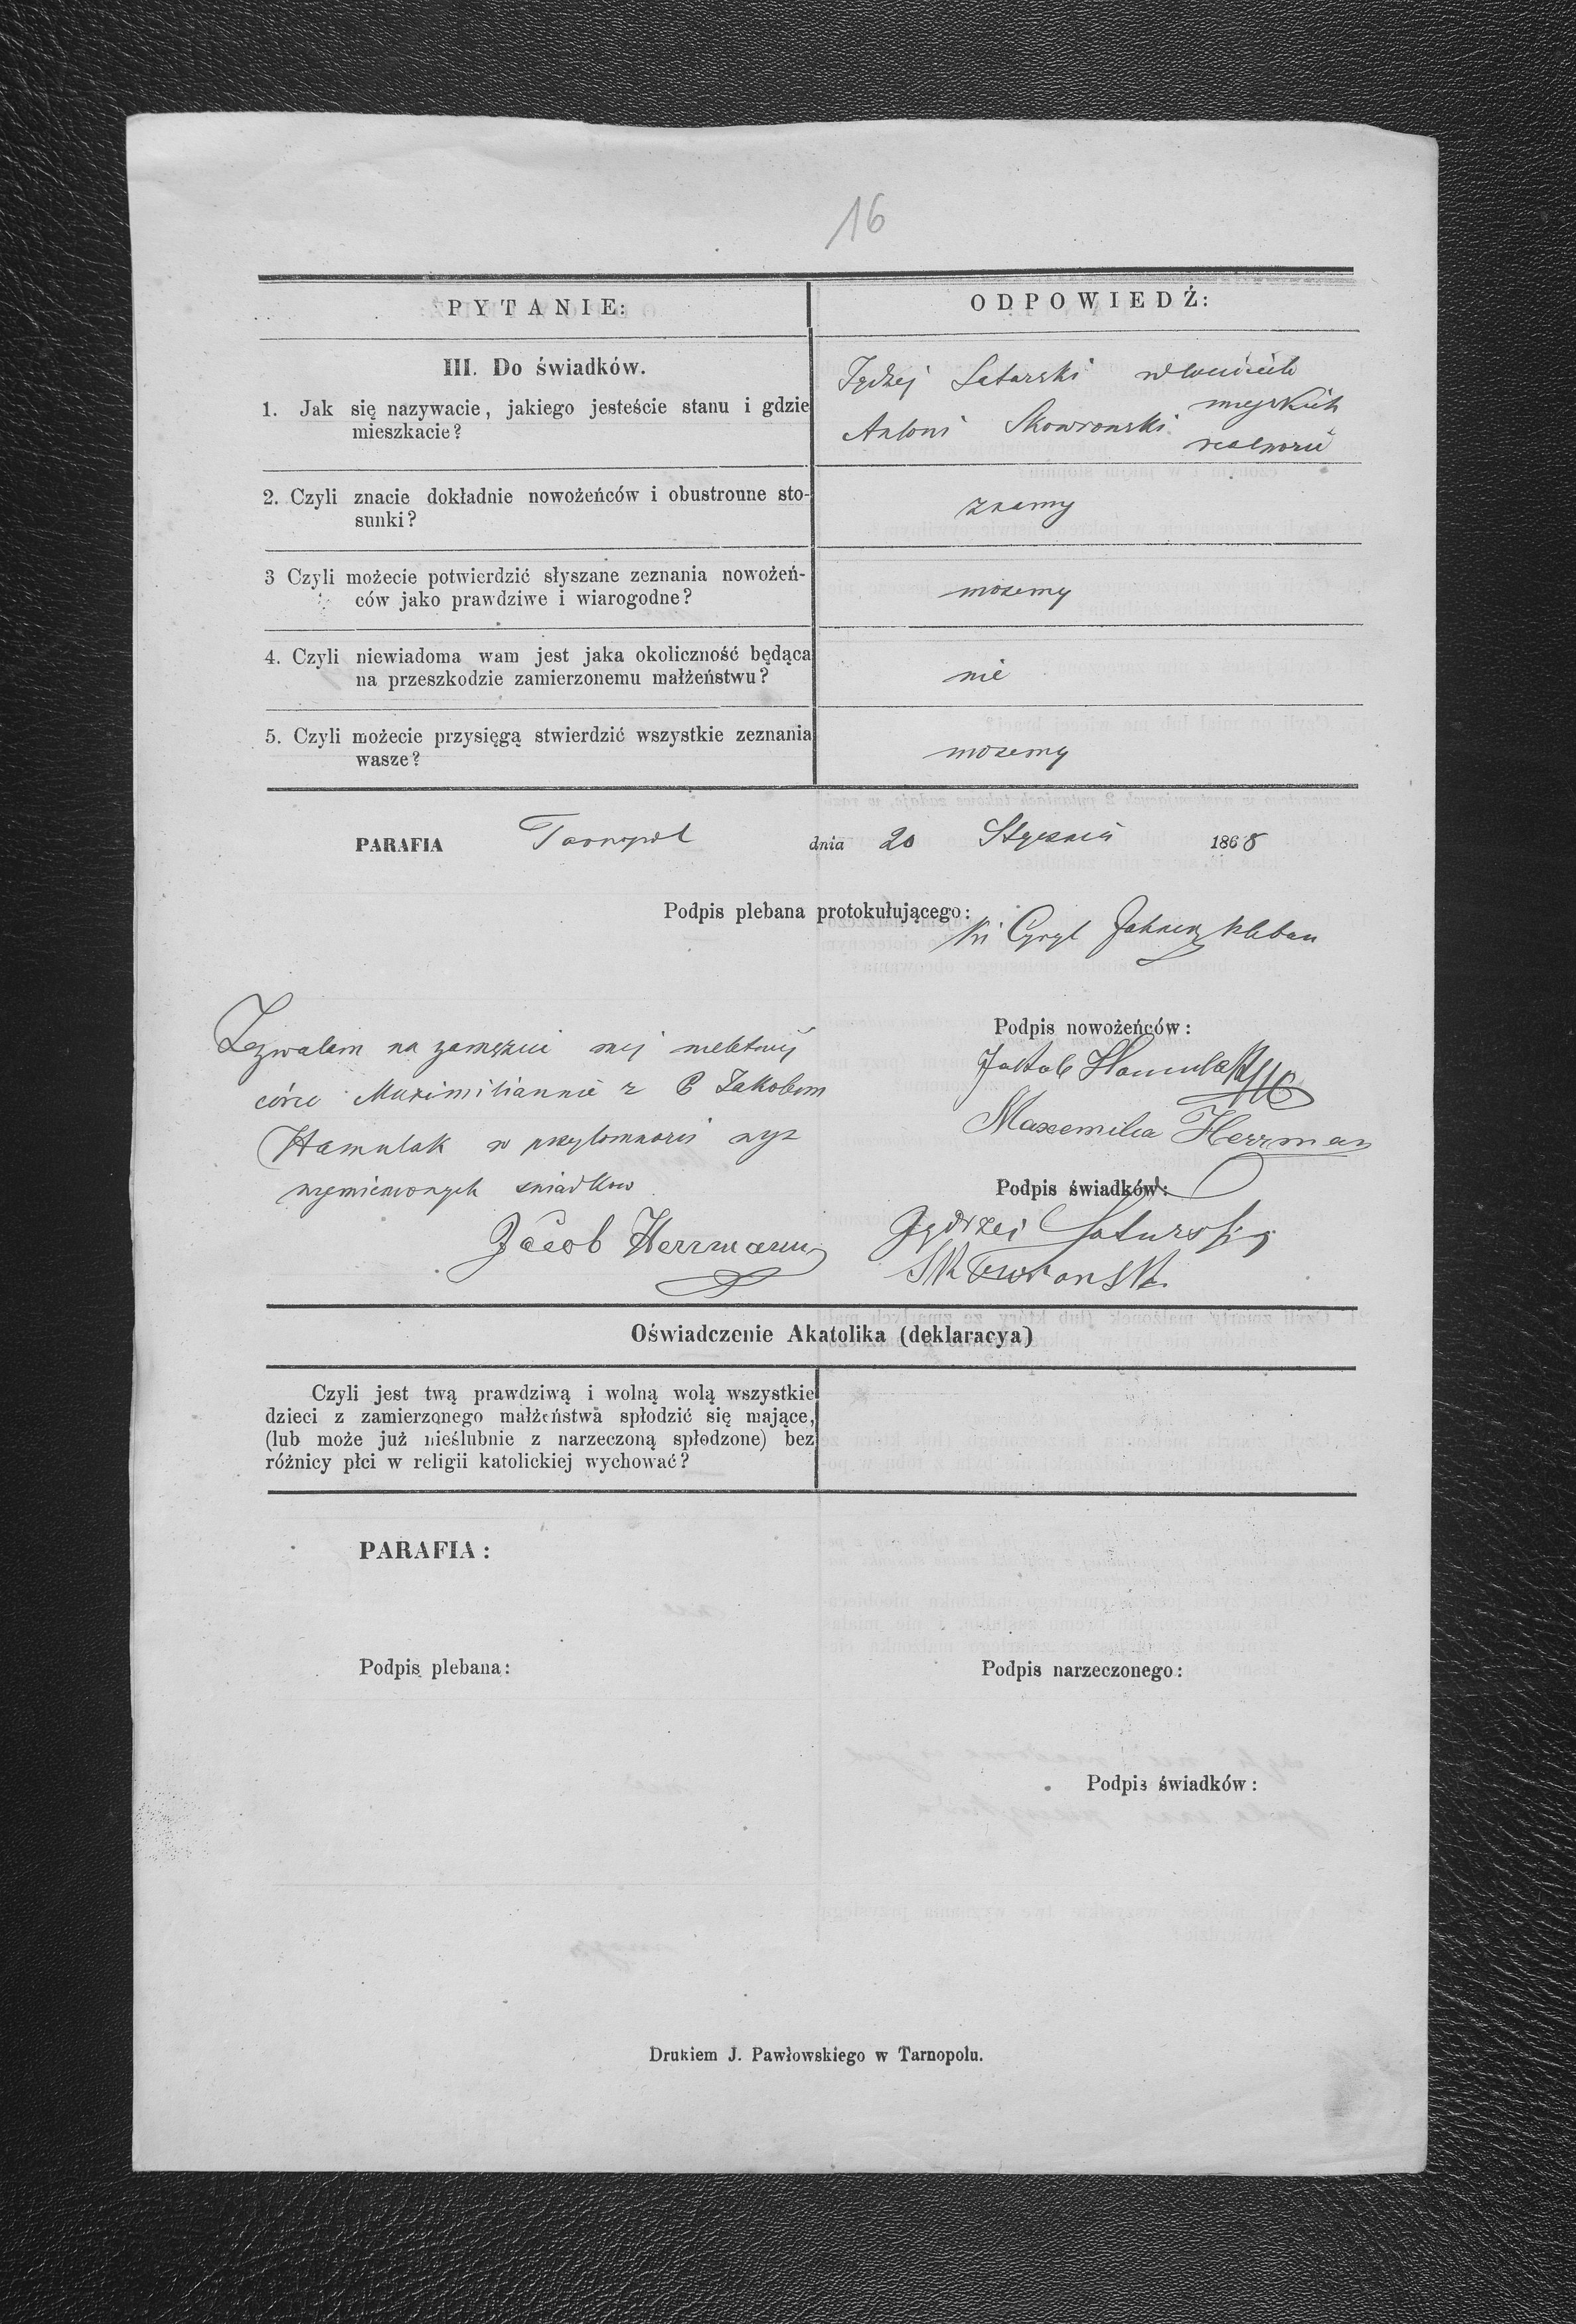 16
PYTANIE:
ODPOWIEDŹ:
III. Do świadków.
1. Jak się nazywacie, jakiego jesteście stanu i gdzie
mieszkacie?
Jędrzej Saturski
Antoni Skowronski
2. Czyli znacie dokładnie nowożeńców i obustronne sto-
sunki?
znamy
3 Czyli możecie potwierdzić słyszane zeznania nowożeń-
ców jako prawdziwe i wiarogodne?
mozemy
4. Czyli niewiadoma wam jest jaka okoliczność będąca
na przeszkodzie zamierzonemu małżeństwu?
nie
5. Czyli możecie przysięgą stwierdzić wszystkie zeznania
wasze?
mozemy
PARAFIA Tarnopol dnia 20 Stycznia 1868
Podpis plebana protokułującego:
Cyryl pleban
Zezwalam na zamęzcie mej
córce Maximiliannie z P Jakobem
Hamulak w przytomnosci wyz
wymienionych swiadkow
Jacob Herrmann
Podpis nowożeńców:
Jakob Hamulak
Maxemilia Herrman
Podpis świadków:
Jędrzei Saturski
Skowronski
Oświadczenie Akatolika (deklaracya)
Czyli jest twą prawdziwą i wolną wolą wszystkie
dzieci z zamierzonego małżeństwa spłodzić się mające,
(lub może już nieślubnie z narzeczoną spłodzone) bez
różnicy płci w religii katolickiej wychować?
PARAFIA:
Podpis plebana:
Podpis narzeczonego:
Podpis świadków:
Drukiem J. Pawłowskiego w Tarnopolu.